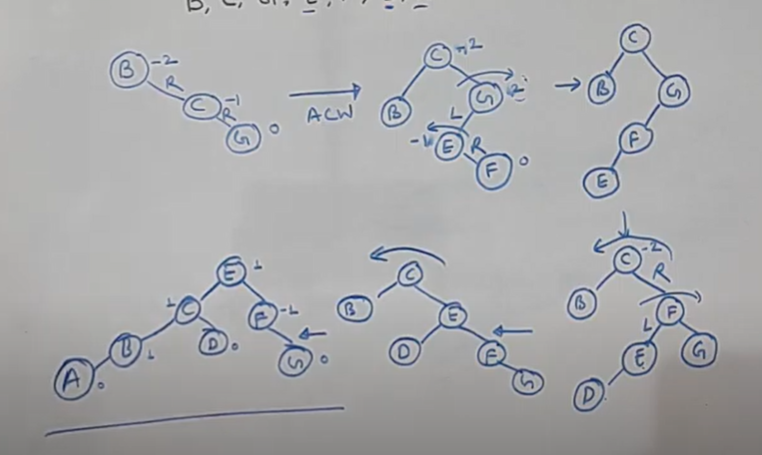 B, C, G,
B -2
R
C -1
R
G 0
ACW
C -2
B
G 2
L
E -1
R
F 0
C
B
G
F
E
C -2
B
R
F
L
E
G
D
C
B
E
D
F
G
E 1
C 1
F -1
B 1
D 0
G 0
A 0